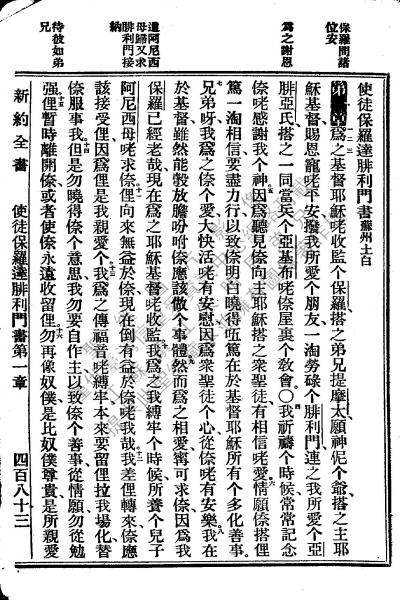 保羅問諸
位安
爲之謝恩
遣阿尼西
母歸又求
腓利門接
納
待彼如弟
兄
使徒保羅達腓利門書 蘇州土白
爲之基督耶穌咾收監個保羅搭之弟兄提摩太願神伲個爺搭之主耶
穌基督賜恩寵咾平安撥我所愛個朋友一淘勞碌個腓利門連之我所愛個亞
腓亞氏搭之一同當兵個亞基布咾倷屋裏個敎會○我祈禱個時候常常記念
倷咾感謝我個神因爲聽見倷向主耶穌搭之衆聖徒有相信咾愛情願倷搭俚
篤一淘相信要盡力行以致倷明白曉得㕶篤在於基督耶穌所有個多化善事
兄弟呀我爲之倷個愛大快活咾有安慰因爲衆聖徒個心從倷咾有安樂我在
於基督雖然能彀放膽吩咐倷應該做個事體然而爲之相愛寗可求倷因爲我
保羅已經老哉現在爲之耶穌基督咾收監我爲之我縛牢個時候所養個兒子
阿尼西母咾求倷俚向來無益於倷現在倒有益於倷咾我哉我差俚轉來倷應
該接受俚因爲俚是我親愛個我爲之傳福音咾縛牢本來要留俚拉我場化替
倷服事我但是勿曉得倷個意思我勿要自作主以致倷個善事從情願勿從勉
强俚暫時離開倷或者使倷永遠收留俚勿再像奴僕是比奴僕尊貴是所親愛
新約全書 使徒保羅達腓利門書第一章 四百八十三